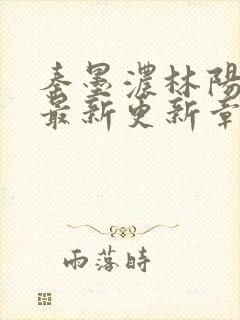 秦墨濃林陽
最新更新章
雨落時